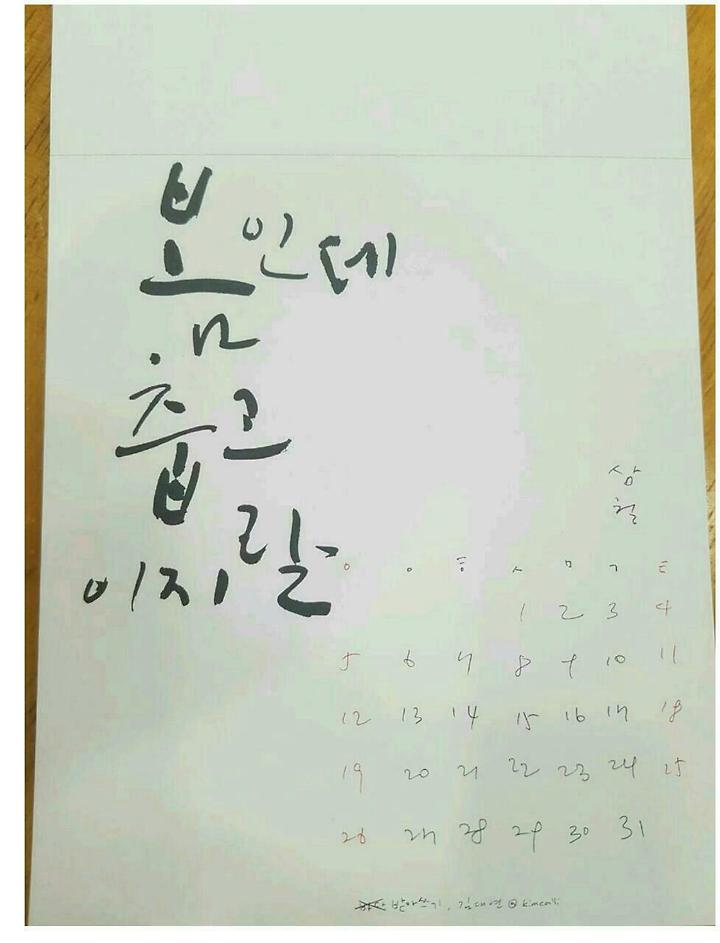 봄인데
춥고
이지랄
삼
월
ㅇ ㅇ ㅎ ㅅ ㅁ ㄱ ㅌ
1 2 3 4
5 6 7 8 9 10 11
12 13 14 15 16 17 18
19 20 21 22 23 24 25
26 27 28 29 30 31
받아쓰기, 김대연 @kimcalli